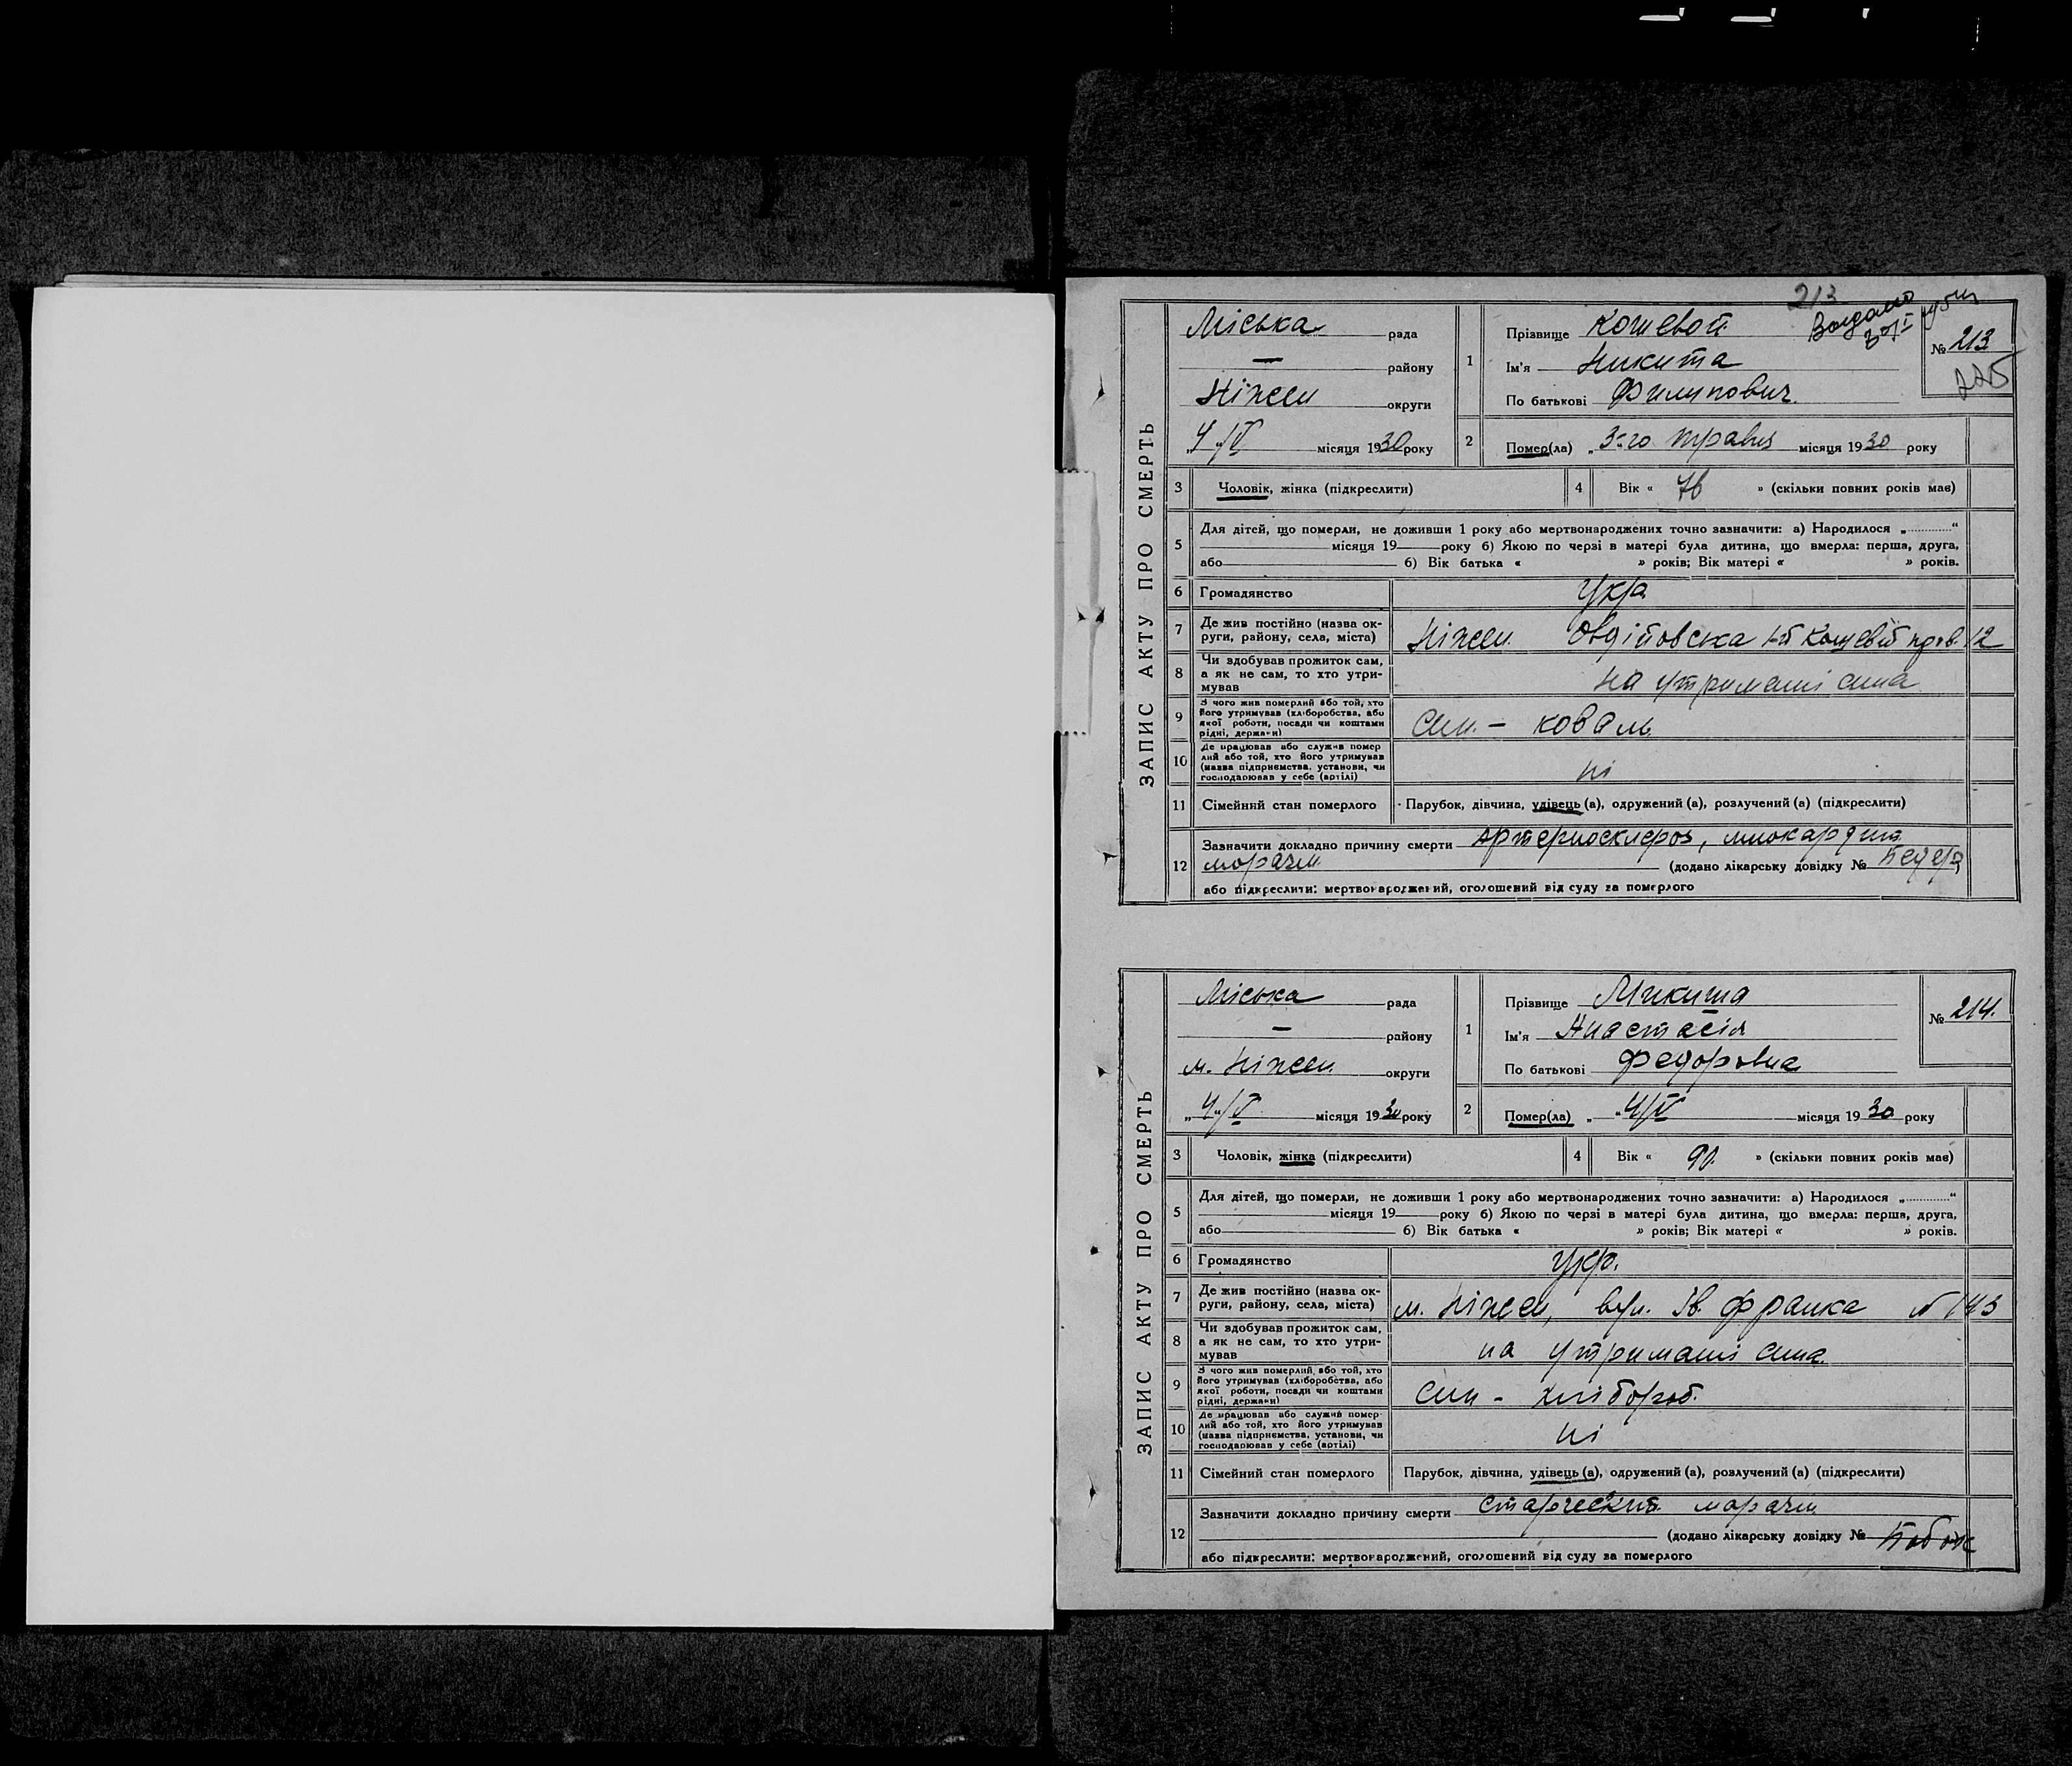 213
ЗАПИС АКТУ ПРО СМЕРТЬ
Міська рада
— району
Ніжен округи
„4“/V місяця 1930 року
1
Прізвище Кошевой
Ім'я Никита
По батькові Филипович
№ 213
2
Помер(ла) „3“-го травня місяця 1930 року
3
Чоловік, жінка (підкреслити)
4
Вік « 76 » (скільки повних років має)
5
Для дітей, що померли, не доживши 1 року або мертвонароджених точно зазначити: а) Народилося „............“
місяця 19 року б) Якою по черзі в матері була дитина, що вмерла: перша, друга,
або б) Вік батька « » років; Вік матері « » років.
6
Громадянство
Укр
7
Де жив постійно (назва ок-
руги, району, села, міста)
Ніжен Овдіївська 1-й Кошевій пров. 12
8
Чи здобував прожиток сам,
а як не сам, то хто утри-
мував
на утриманні сина
9
З чого жив померлий або той, хто
його утримував (хліборобства, або
якої роботи, посади чи коштами
рідні, держави)
син - коваль
10
Де працював або служив помер
лий або той, хто його утримував
(назва підприємства, установи, чи
господарював у себе (артілі)
ні
11
Сімейний стан померлого
Парубок, дівчина, удівець (а), одружений (а), розлучений (а) (підкреслити)
12
Зазначити докладно причину смерти Артериосклероз, миокардит
маразм (додано лікарську довідку №
або підкреслити: мертвонароджений, оголошений від суду за померлого
ЗАПИС АКТУ ПРО СМЕРТЬ
Міська рада
— району
м. Ніжен округи
„4“/V місяця 1930 року
1
Прізвище Микита
Ім'я Анастасія
По батькові Федоровна
№ 214.
2
Помер(ла) „4/V місяця 1930 року
3
Чоловік, жінка (підкреслити)
4
Вік « 90. » (скільки повних років має)
5
Для дітей, що померли, не доживши 1 року або мертвонароджених точно зазначити: а) Народилося „............“
місяця 19 року б) Якою по черзі в матері була дитина, що вмерла: перша, друга,
або б) Вік батька « » років; Вік матері « » років.
6
Громадянство
укр.
7
Де жив постійно (назва ок-
руги, району, села, міста)
м. Ніжен, вул. Ів. Франка № 143
8
Чи здобував прожиток сам,
а як не сам, то хто утри-
мував
на утриманні сина
9
З чого жив померлий або той, хто
його утримував (хліборобства, або
якої роботи, посади чи коштами
рідні, держави)
син - хлібороб.
10
Де працював або служив помер-
лий або той, хто його утримував
(назва підприємства, установи, чи
господарював у себе (артілі)
ні
11
Сімейний стан померлого
Парубок, дівчина, удівець (а), одружений (а), розлучений (а) (підкреслити)
12
Зазначити докладно причину смерти старческий маразм
(додано лікарську довідку №
або підкреслити: мертвонароджений, оголошений від суду за померлого